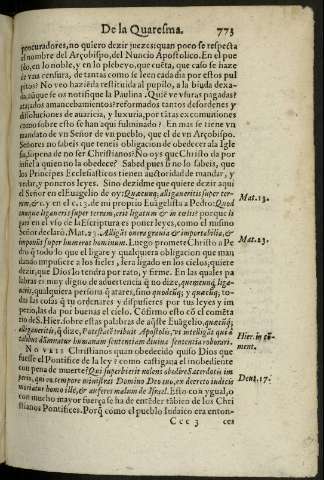 De la Quaresma. 773
procuradores, no quiero dezir juezes: quan poco se respecta
el nombre del Arçobispo, del Nuncio Apostolico. En el pue
en lo noble, y en lo plebeyo, que cuẽta, que caso se haze
de vna censura, de tantas como se leen cada dia por estos pul
pitos? No veo haziẽda restituida al pupilo, a la biuda dexa-
aũque se os notifique la Paulina. Quiẽ ve vsuras pagadas?
atajados amancebamientos? reformados tantos desordenes y
dissoluciones de auaricia, y luxuria, por tãtas excomuniones
como sobre esto se han aqui fulminado? En mas se tiene vn
mandato de vn Señor de vn pueblo, que el de vn Arçobispo.
Señores no sabeis que teneis obligacion de obedecer a la Igle
sia, so pena de no ser Christianos? No oys que Christo da por
infiel a quien no la obedece? Sabed pues si no lo sabeis, que
los Principes Ecclesiasticos tienen auctoridad de mandar, y
vedar, y poneros leyes. Sino dezidme que quiere dezir aqui
el Señor en el Euãgelio de oy: Quæcunq; alligaueritis super ter-
rem, &c. y en el c. 13. de mi proprio Euãgelista a Pedro: Quod
cunque ligaueris super terram, erit ligatum & in cœlis? porque
en el vso de la Escriptura es poner leyes, como el mismo
Señor declarò, Mat. 23. Alligãt onera grauia & importabilia, &
imponũt super humeros hominum. Luego promete Christo a Pe
dro q̃ todo lo que el ligare y qualquiera obligacion que man
dando impusiere a los fieles, sera ligado en los cielos, quiere
dezir, que Dios lo tendra por rato, y firme. En las quales pa
labras es muy digno de aduertencia q̃ no dize, quemcunq; liga-
ueris, qualquiera persona q̃ atares, sino quodcũq; y quæcũq; to-
das las cosas q̃ tu ordenares y dispusieres por tus leyes y im
perio, las da por buenas el cielo. Cõfirmo esto cõ el comẽta
to de S. Hier. sobre estas palabras de aq̃ste Euãgelio, quæcũq;
alligaueritis, q̃ dize, Potestatẽ tribuit Apostolis, vt intelligãt quòd
talibus damnatur humanam sententiam diuina sententia roborari.
No veis Christianos quan obedecido quiso Dios que
fuesse el Pontifice de la ley? como castigaua el inobediente
con pena de muerte? Qui superbierit nolens obedire Sacerdotis im
perio, qui eo tempore ministrat Domino Deo tuo, ex decreto iudicis
morietur homo ille, & auferes malum de Israel. Esto con ygual, o
con mucho mayor fuerça se ha de entẽder tãbien de los Chri
stianos Pontifices. Porq̃ como el pueblo Iudaico era enton-
Ccc 3 ces
Mat. 13.
Mat. 23.
Hier. in cõ-
ment.
Deut. 17.